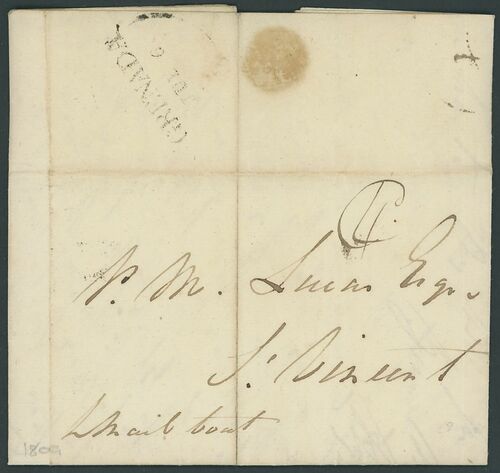 GRENADA
JU 6
4
P. M. Lucas Esqr
St Vincent
Mail boat
1809